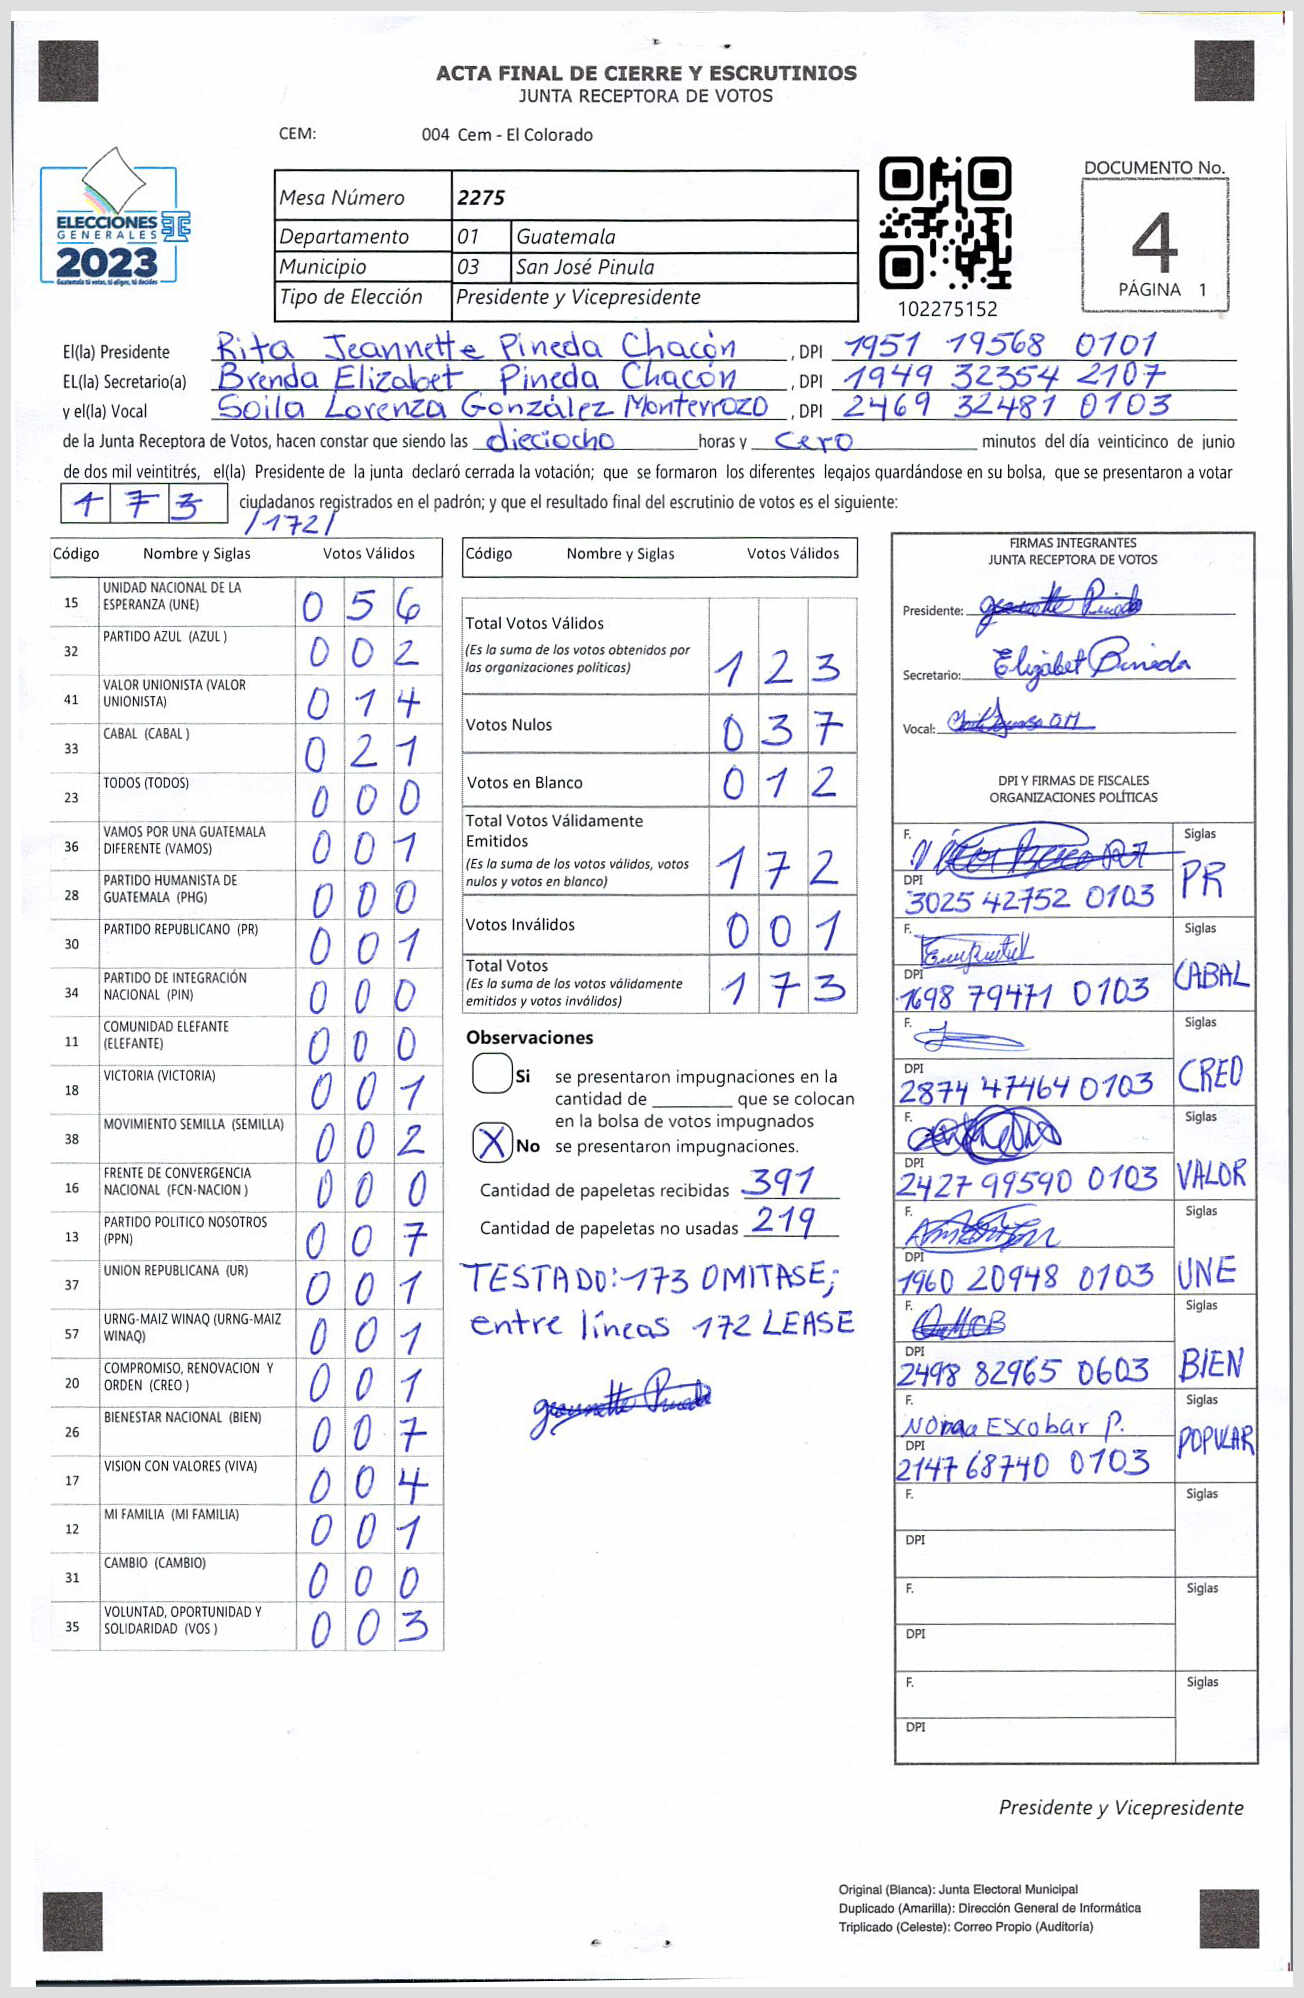 ACTA FINAL DE CIERRE Y ESCRUTINIOS
JUNTA RECEPTORA DE VOTOS
CEM: 004 Cem - El Colorado
ELECCIONES
GENERALES
2023
Guatemala tú votas, tú eliges, tú decides
Mesa Número 2275
Departamento 01 Guatemala
Municipio 03 San José Pinula
Tipo de Elección Presidente y Vicepresidente
102275152
DOCUMENTO No.
4
PÁGINA 1
El(la) Presidente Rita Jeannette Pineda Chacón , DPI 1951 19568 0101
EL(la) Secretario(a) Brenda Elizabet Pineda Chacón , DPI 1949 32354 2107
y el(la) Vocal Soila Lorenza González Monterrozo , DPI 2469 32481 0103
de la Junta Receptora de Votos, hacen constar que siendo las dieciocho horas y cero minutos del día veinticinco de junio
de dos mil veintitrés, el(la) Presidente de la junta declaró cerrada la votación; que se formaron los diferentes legajos guardándose en su bolsa, que se presentaron a votar
173 ciudadanos registrados en el padrón; y que el resultado final del escrutinio de votos es el siguiente:
/172/
Código Nombre y Siglas Votos Válidos
15 UNIDAD NACIONAL DE LA ESPERANZA (UNE) 056
32 PARTIDO AZUL (AZUL ) 002
41 VALOR UNIONISTA (VALOR UNIONISTA) 014
33 CABAL (CABAL ) 021
23 TODOS (TODOS) 000
36 VAMOS POR UNA GUATEMALA DIFERENTE (VAMOS) 001
28 PARTIDO HUMANISTA DE GUATEMALA (PHG) 000
30 PARTIDO REPUBLICANO (PR) 001
34 PARTIDO DE INTEGRACIÓN NACIONAL (PIN) 000
11 COMUNIDAD ELEFANTE (ELEFANTE) 000
18 VICTORIA (VICTORIA) 001
38 MOVIMIENTO SEMILLA (SEMILLA) 002
16 FRENTE DE CONVERGENCIA NACIONAL (FCN-NACION ) 000
13 PARTIDO POLITICO NOSOTROS (PPN) 007
37 UNION REPUBLICANA (UR) 001
57 URNG-MAIZ WINAQ (URNG-MAIZ WINAQ) 001
20 COMPROMISO, RENOVACION Y ORDEN (CREO ) 001
26 BIENESTAR NACIONAL (BIEN) 007
17 VISION CON VALORES (VIVA) 004
12 MI FAMILIA (MI FAMILIA) 001
31 CAMBIO (CAMBIO) 000
35 VOLUNTAD, OPORTUNIDAD Y SOLIDARIDAD (VOS ) 003
Código Nombre y Siglas Votos Válidos
Total Votos Válidos
(Es la suma de los votos obtenidos por
las organizaciones políticas) 123
Votos Nulos 037
Votos en Blanco 012
Total Votos Válidamente
Emitidos
(Es la suma de los votos válidos, votos
nulos y votos en blanco) 172
Votos Inválidos 001
Total Votos
(Es la suma de los votos válidamente
emitidos y votos inválidos) 173
Observaciones
Si se presentaron impugnaciones en la
cantidad de ________ que se colocan
en la bolsa de votos impugnados
X No se presentaron impugnaciones.
Cantidad de papeletas recibidas 391
Cantidad de papeletas no usadas 219
TESTADO: 173 OMITASE;
entre líneas 172 LEASE
Jeannette Pineda
FIRMAS INTEGRANTES
JUNTA RECEPTORA DE VOTOS
Presidente: Jeannette Pineda
Secretario: Elizabet Pineda
Vocal:
DPI Y FIRMAS DE FISCALES
ORGANIZACIONES POLÍTICAS
F. Siglas
DPI 3025 42752 0103 PR
F. Siglas
DPI 1698 79471 0103 CABAL
F. Siglas
DPI 2874 47464 0103 CREO
F. Siglas
DPI 2427 99590 0103 VALOR
F. Siglas
DPI 1960 20948 0103 UNE
F. Siglas
DPI 2498 82965 0603 BIEN
F. Norma Escobar P. Siglas
DPI 2147 68740 0103 POPULAR
F. Siglas
DPI
F. Siglas
DPI
F. Siglas
DPI
Presidente y Vicepresidente
Original (Blanca): Junta Electoral Municipal
Duplicado (Amarilla): Dirección General de Informática
Triplicado (Celeste): Correo Propio (Auditoría)